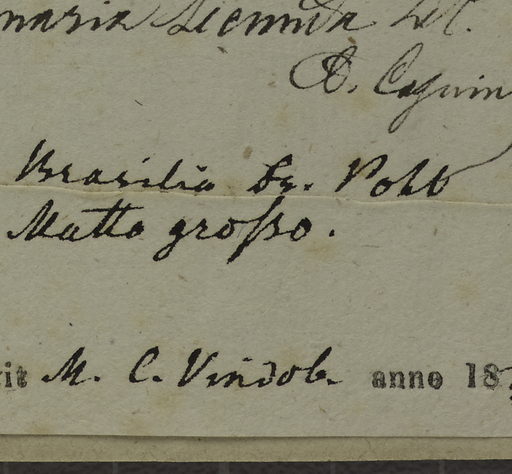 naria Decumta DC.
A. Coguin
Brasilia Dr. Pohl
Matto grosso.
it M. C. Vindob. anno 18